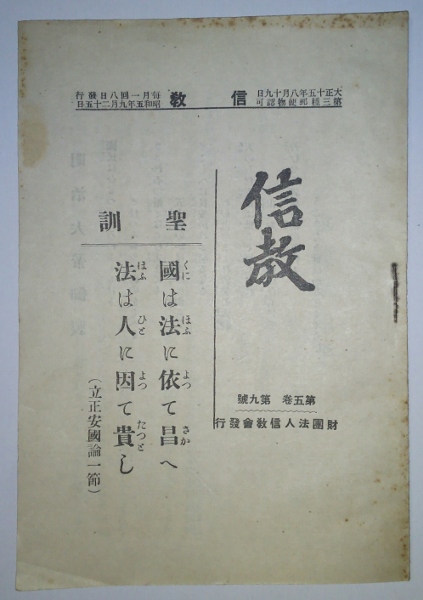 大正十五年八月十九日
第三種郵便物認可
信教
毎月一回八日發行
昭和五年九月二十五日
信教
第五卷 第九號
財團法人信教會發行
聖訓
國は法に依て昌へ
くに ほふ よつ さか
法は人に因て貴し
ほふ ひと よつ たつと
(立正安國論一節)